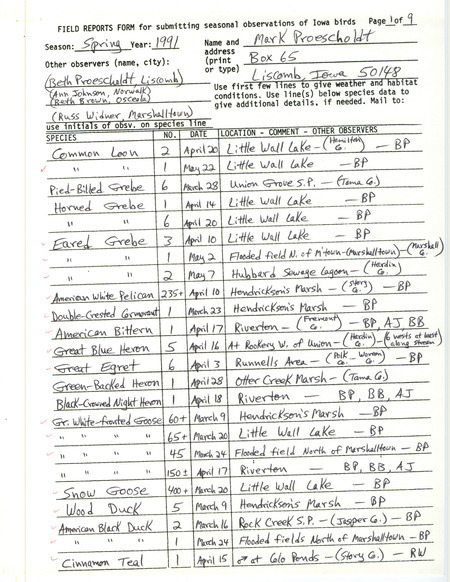 FIELD REPORTS FORM for submitting seasonal observations of Iowa birds Page 1 of 9
Season: Spring Year: 1991 Name and address (print or type) Mark Proescholdt
Box 65
Liscomb, Iowa 50148
Other observers (name, city):
(Beth Proescholdt, Liscomb)
(Ann Johnson, Norwalk)
(Beth Brown, Osceola)
(Russ Widner, Marshalltown)
use initials of obsv. on species line
Use first few lines to give weather and habitat
conditions. Use line(s) below species data to
give additional details, if needed. Mail to:
SPECIES NO. DATE LOCATION - COMMENT - OTHER OBSERVERS
Common Loon 2 April 20 Little Wall Lake - (Hamilton Co.) - BP
" " 1 May 22 Little Wall Lake - BP
Pied-Billed Grebe 6 March 28 Union Grove S.P. - (Tama Co.)
Horned Grebe 1 April 14 Little Wall Lake - BP
" " 6 April 20 Little Wall Lake - BP
Eared Grebe 3 April 10 Little Wall Lake - BP
" " 1 May 2 Flooded field N. of M'town - (Marshalltown) - (Marshall Co.)
" " 2 May 7 Hubbard Sewage Lagoon - (Hardin Co.)
American White Pelican 235+ April 10 Hendrickson's Marsh - (Story Co.) - BP
Double-Crested Cormorant 1 March 23 Hendrickson's Marsh - BP
American Bittern 1 April 17 Riverton - (Fremont Co.) - BP, AJ, BB
Great Blue Heron 5 April 16 At Rookery W. of Union - (Hardin Co.) - (6 nests at least along stream)
Great Egret 6 April 3 Runnells Area - (Polk - Warren Co.) - BP
Green-Backed Heron 1 April 28 Otter Creek Marsh - (Tama Co.)
Black-Crowned Night Heron 1 April 18 Riverton - BP, BB, AJ
Gr. White-fronted Goose 60+ March 9 Hendrickson's Marsh - BP
" " " 65+ March 20 Little Wall Lake - BP
" " " 45 March 24 Flooded field North of Marshalltown - BP
" " " 150± April 17 Riverton - BP, BB, AJ
Snow Goose 400+ March 20 Little Wall Lake - BP
Wood Duck 5 March 9 Hendrickson's Marsh - BP
American Black Duck 2 March 16 Rock Creek S.P. - (Jasper Co.) - BP
" " " 1 March 24 Flooded fields North of Marshalltown - BP
Cinnamon Teal 1 April 15 ♂ at Colo Ponds - (Story Co.) - RW